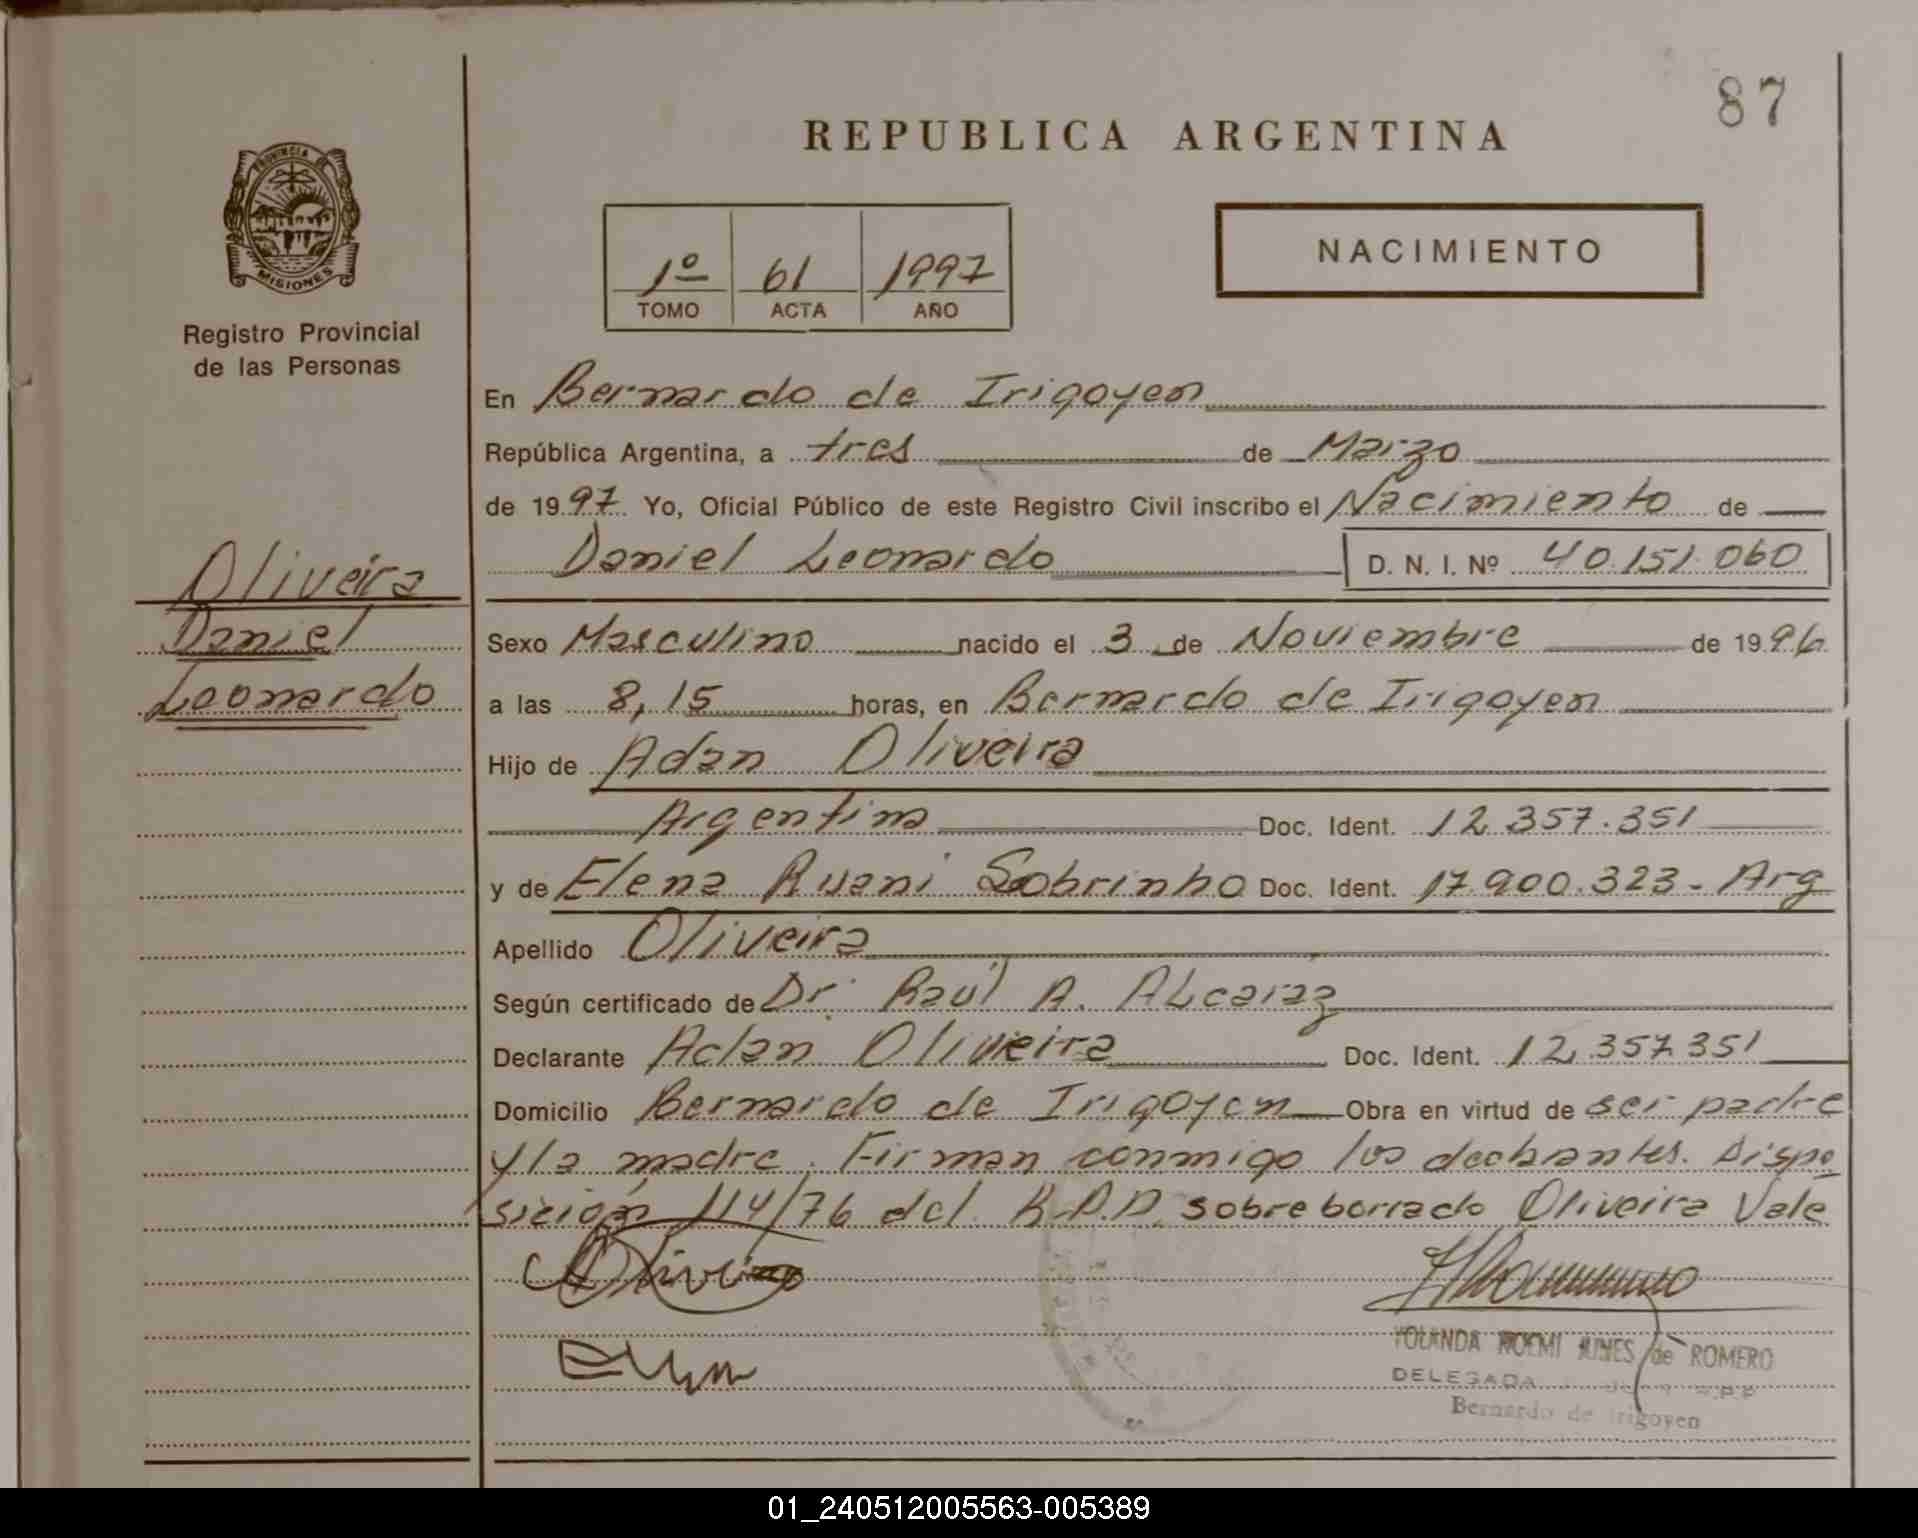 87
REPUBLICA ARGENTINA
PROVINCIA DE
MISIONES
Registro Provincial
de las Personas
1º 61 1997
TOMO ACTA AÑO
NACIMIENTO
En Bernardo de Irigoyen
República Argentina, a tres de Marzo
de 1997 Yo, Oficial Público de este Registro Civil inscribo el Nacimiento de
Daniel Leonardo D. N. I. Nº 40.151.060
Oliveira
Daniel
Leonardo
Sexo Masculino nacido el 3 de Noviembre de 1996
a las 8,15 horas, en Bernardo de Irigoyen
Hijo de Adan Oliveira
Argentina Doc. Ident. 12.357.351
y de Elena Ruani Sobrinho Doc. Ident. 17.900.323- Arg
Apellido Oliveira
Según certificado de Dr. Raúl A. Alcaraz
Declarante Adan Oliveira Doc. Ident. 12.357.351
Domicilio Bernardo de Irigoyen Obra en virtud de ser padre
y la madre. Firman conmigo los declarantes. Dispo
sición 114/76 del R.P.P. sobreborrado Oliveira Vale
YOLANDA NOEMI de ROMERO
DELEGADA
Bernardo de Irigoyen
01_240512005563-005389